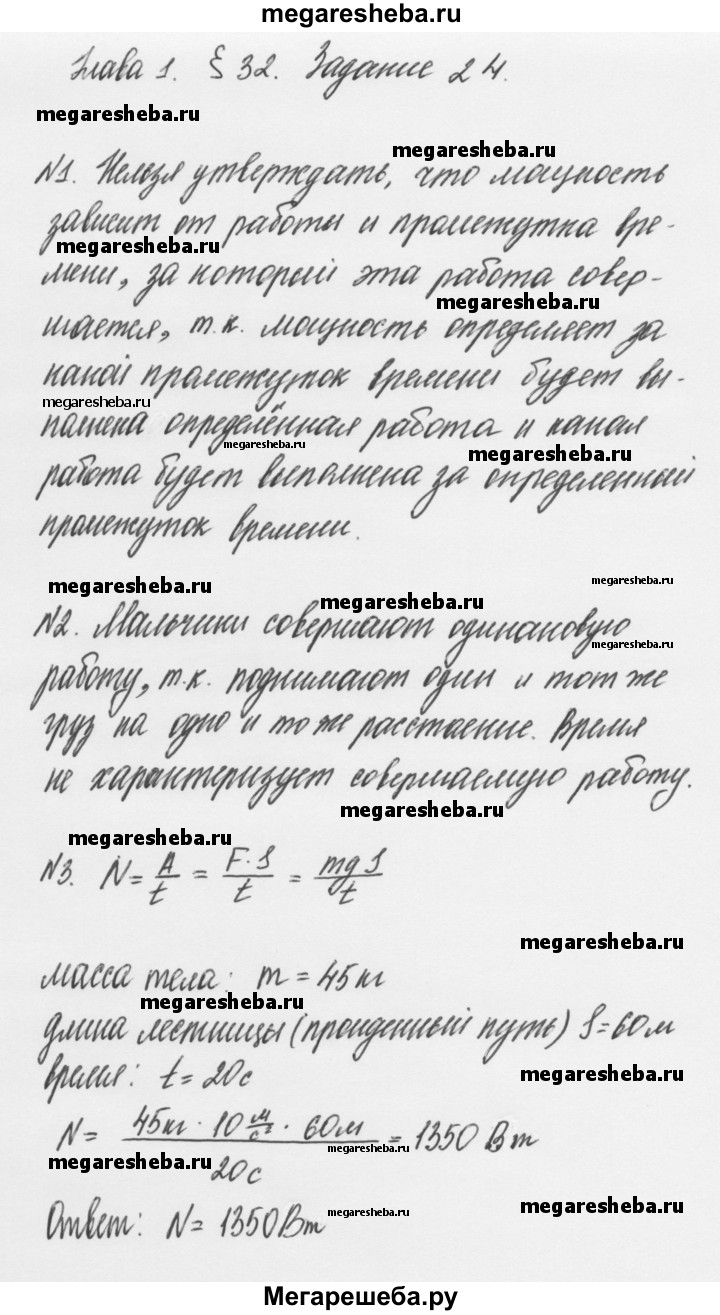 megaresheba.ru
Глава 1. § 32. Задание 24.
megaresheba.ru
megaresheba.ru
№1. Нельзя утверждать, что мощность
зависит от работы и промежутка вре-
megaresheba.ru
мени, за который эта работа совер-
megaresheba.ru
шается, т.к. мощность определяет за
какой промежуток времени будет вы-
megaresheba.ru
полнена определённая работа и какая
megaresheba.ru
megaresheba.ru
работа будет выполнена за определенный
промежуток времени.
megaresheba.ru
megaresheba.ru
megaresheba.ru
№2. Мальчики совершают одинаковую
megaresheba.ru
работу, т.к. поднимают один и тот же
груз на одно и то же расстояние. Время
не характеризует совершаемую работу.
megaresheba.ru
megaresheba.ru
№3. N = A/t = F·S/t = mgS/t
megaresheba.ru
масса тела: m = 45 кг
megaresheba.ru
длина лестницы (пройденный путь) S = 60 м
время: t = 20 с
megaresheba.ru
N = 45 кг · 10 м/с² · 60 м / 20 с = 1350 Вт
megaresheba.ru
megaresheba.ru
Ответ: N = 1350 Вт
megaresheba.ru
megaresheba.ru
Мегарешеба.ру